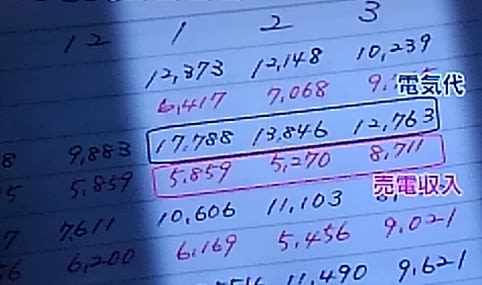 12 1 2 3
12,373 12,148 10,239
6,417 7,068 9,
電気代
8 9,883 17,788 13,846 12,763
5 5,859 5,859 5,270 8,711
売電収入
7 7,611 10,606 11,103
6 6,200 6,169 5,456 9,021
11,490 9,621